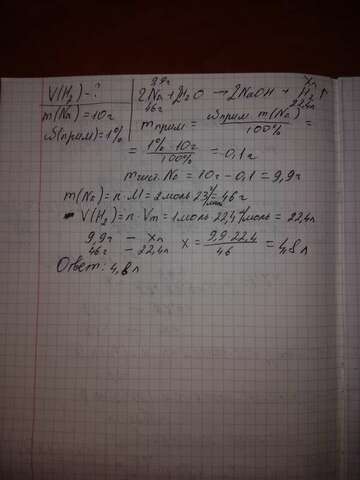 V(H₂) - ?
m(Na) = 10г
ω(прим) = 1%
9,9г xл
2Na + H₂O → 2NaOH + H₂↑
46г 22,4л
mприм = ωприм · m(Na) / 100% =
= 1% · 10г / 100% = 0,1г
mчист. Na = 10г - 0,1 = 9,9г
m(Na) = n · M = 2моль · 23г/моль = 46г
V(H₂) = n · Vm = 1моль · 22,4л/моль = 22,4л
9,9г - xл x = 9,9·22,4 / 46 = 4,8л
46г - 22,4л
Ответ: 4,8л